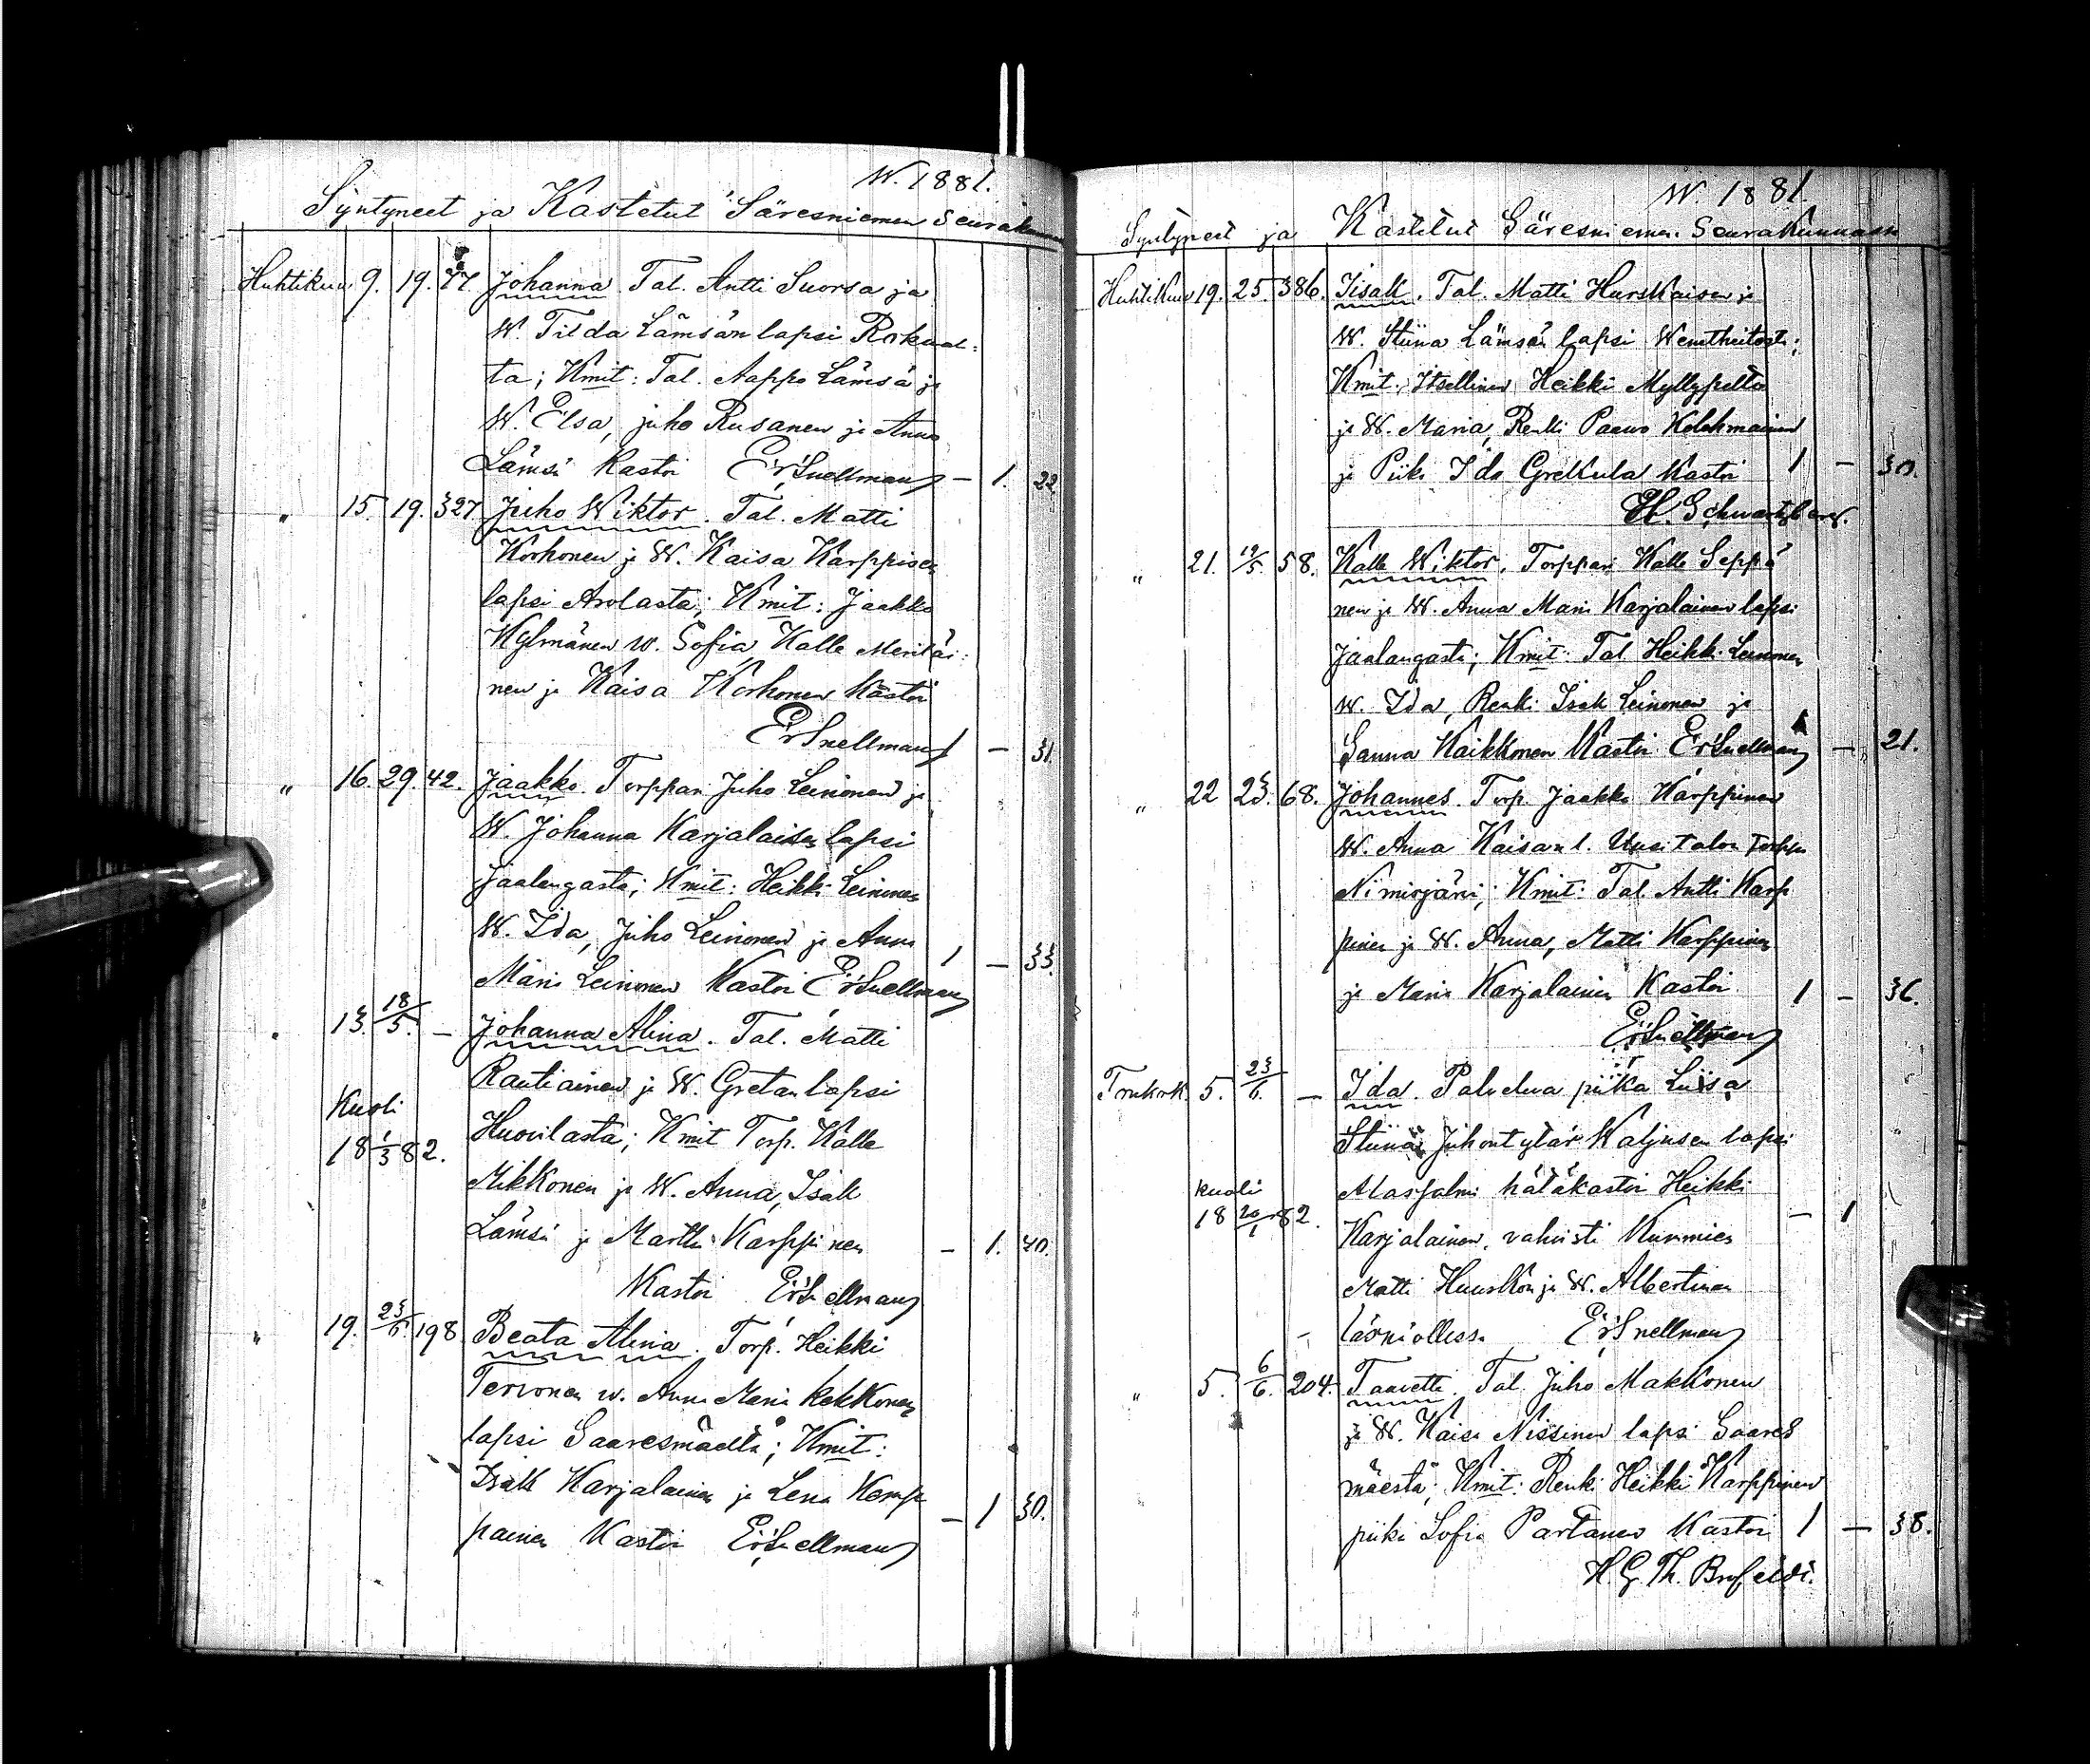 W. 1881.
Syntyneet ja Kastetut Säresniemen Seurakunn
Huhtikuu 9. 19. 77. Johanna. Tal. Antti Suorsa ja
W. Tilda Lämsän lapsi Rokual:
ta; Kmit: Tal. Aappo Lämsä ja
W. Elsa, juho Rusanen ja Anna
Lämsä Kastoi Er. Snellman — 1. 22.
" 15. 19. 327. Juho Wiktor. Tal. Matti
Korhonen ja W. Kaisa Karppisen
lapsi Arolasta; Kmit: Jaakko
Kylmänen w. Sofia, Kalle Meritäi:
nen ja Kaisa Korhonen Kastoi
Er Snellman 1 — 31.
" 16. 29. 42. Jaakko. Torppari Juho Leinonen ja
W. Johanna Karjalaisen lapsi
Jaalangasta; Kmit: Heikki Leinonen
W. Ida, Juho Leinonen ja Anna
Maria Leinonen Kastoi Er Snellman 1 — 33.
" 13. 18/5. — Johanna Alina. Tal. Matti
Rautiainen ja W. Gretan lapsi
Kuoli
Huovilasta; Kmit Torp. Kalle
18 1/3 82.
Mikkonen ja W. Anna, Isak
Lämsä ja Martta Karppinen — 1. 40.
Kastoi Er Snellman
" 19. 23/6. 198 Beata Alina. Torp. Heikki
Tervonen w. Anna Maria Kekkonen
lapsi Saaresmäeltä; Kmit:
Isak Karjalainen ja Lena Kemp
painen Kastoi Er Snellman — 1 30.
W. 1881.
Syntyneet ja Kastetut Säresniemen Seurakunnassa
Huhtikuu 19. 25. 386. Iisak. Tal. Matti Hurskaisen ja
W. Stiina Lämsän lapsi
Kmit. Itsellinen Heikki Myllypelto
ja W. Maria, Renki Paavo Kolehmainen
ja Piika Ida Grekula Kastoi 1 — 30.
H. Schwartzberg.
" 21. 19/5. 58. Kalle Wiktor. Torppari Kalle Seppä
nen ja W. Anna Maria Karjalainen lapsi
Jaalangasta; Kmit: Tal. Heikki Leinonen
W. Ida, Renki Isak Leinonen ja
Sanna Kaikkonen Kastoi Er Snellman 1 — 21.
" 22 23. 68. Johannes. Torp. Jaakko Karppinen
W. Anna Kaisan l. Uusitalon torppa
Nimisjärvi; Kmit: Tal. Antti Karp
pinen ja W. Anna, Matti Karppinen
ja Maria Karjalainen Kastoi 1 — 36.
Er Snellman
Toukok. 5. 23/6. — Ida. Palveleva piika Liisa
Stiina Juhontytär Waljusen lapsi
kuoli
Alasjalmi hätäkastoi Heikki
18 20/1 82.
Karjalainen, vahvisti Kunmies — 1
Matti Huuskon ja W. Albertinan
läsnäollessa Er Snellman
" 5. 6/6. 204. Taavetti. Tal. Juho Makkonen
ja W. Kaisa Nissinen lapsi Saares
mäestä; Kmit: Renki Heikki Karppinen
piika Sofia Partanen Kastoi 1 — 38.
H. G. Th. Brofeldt.